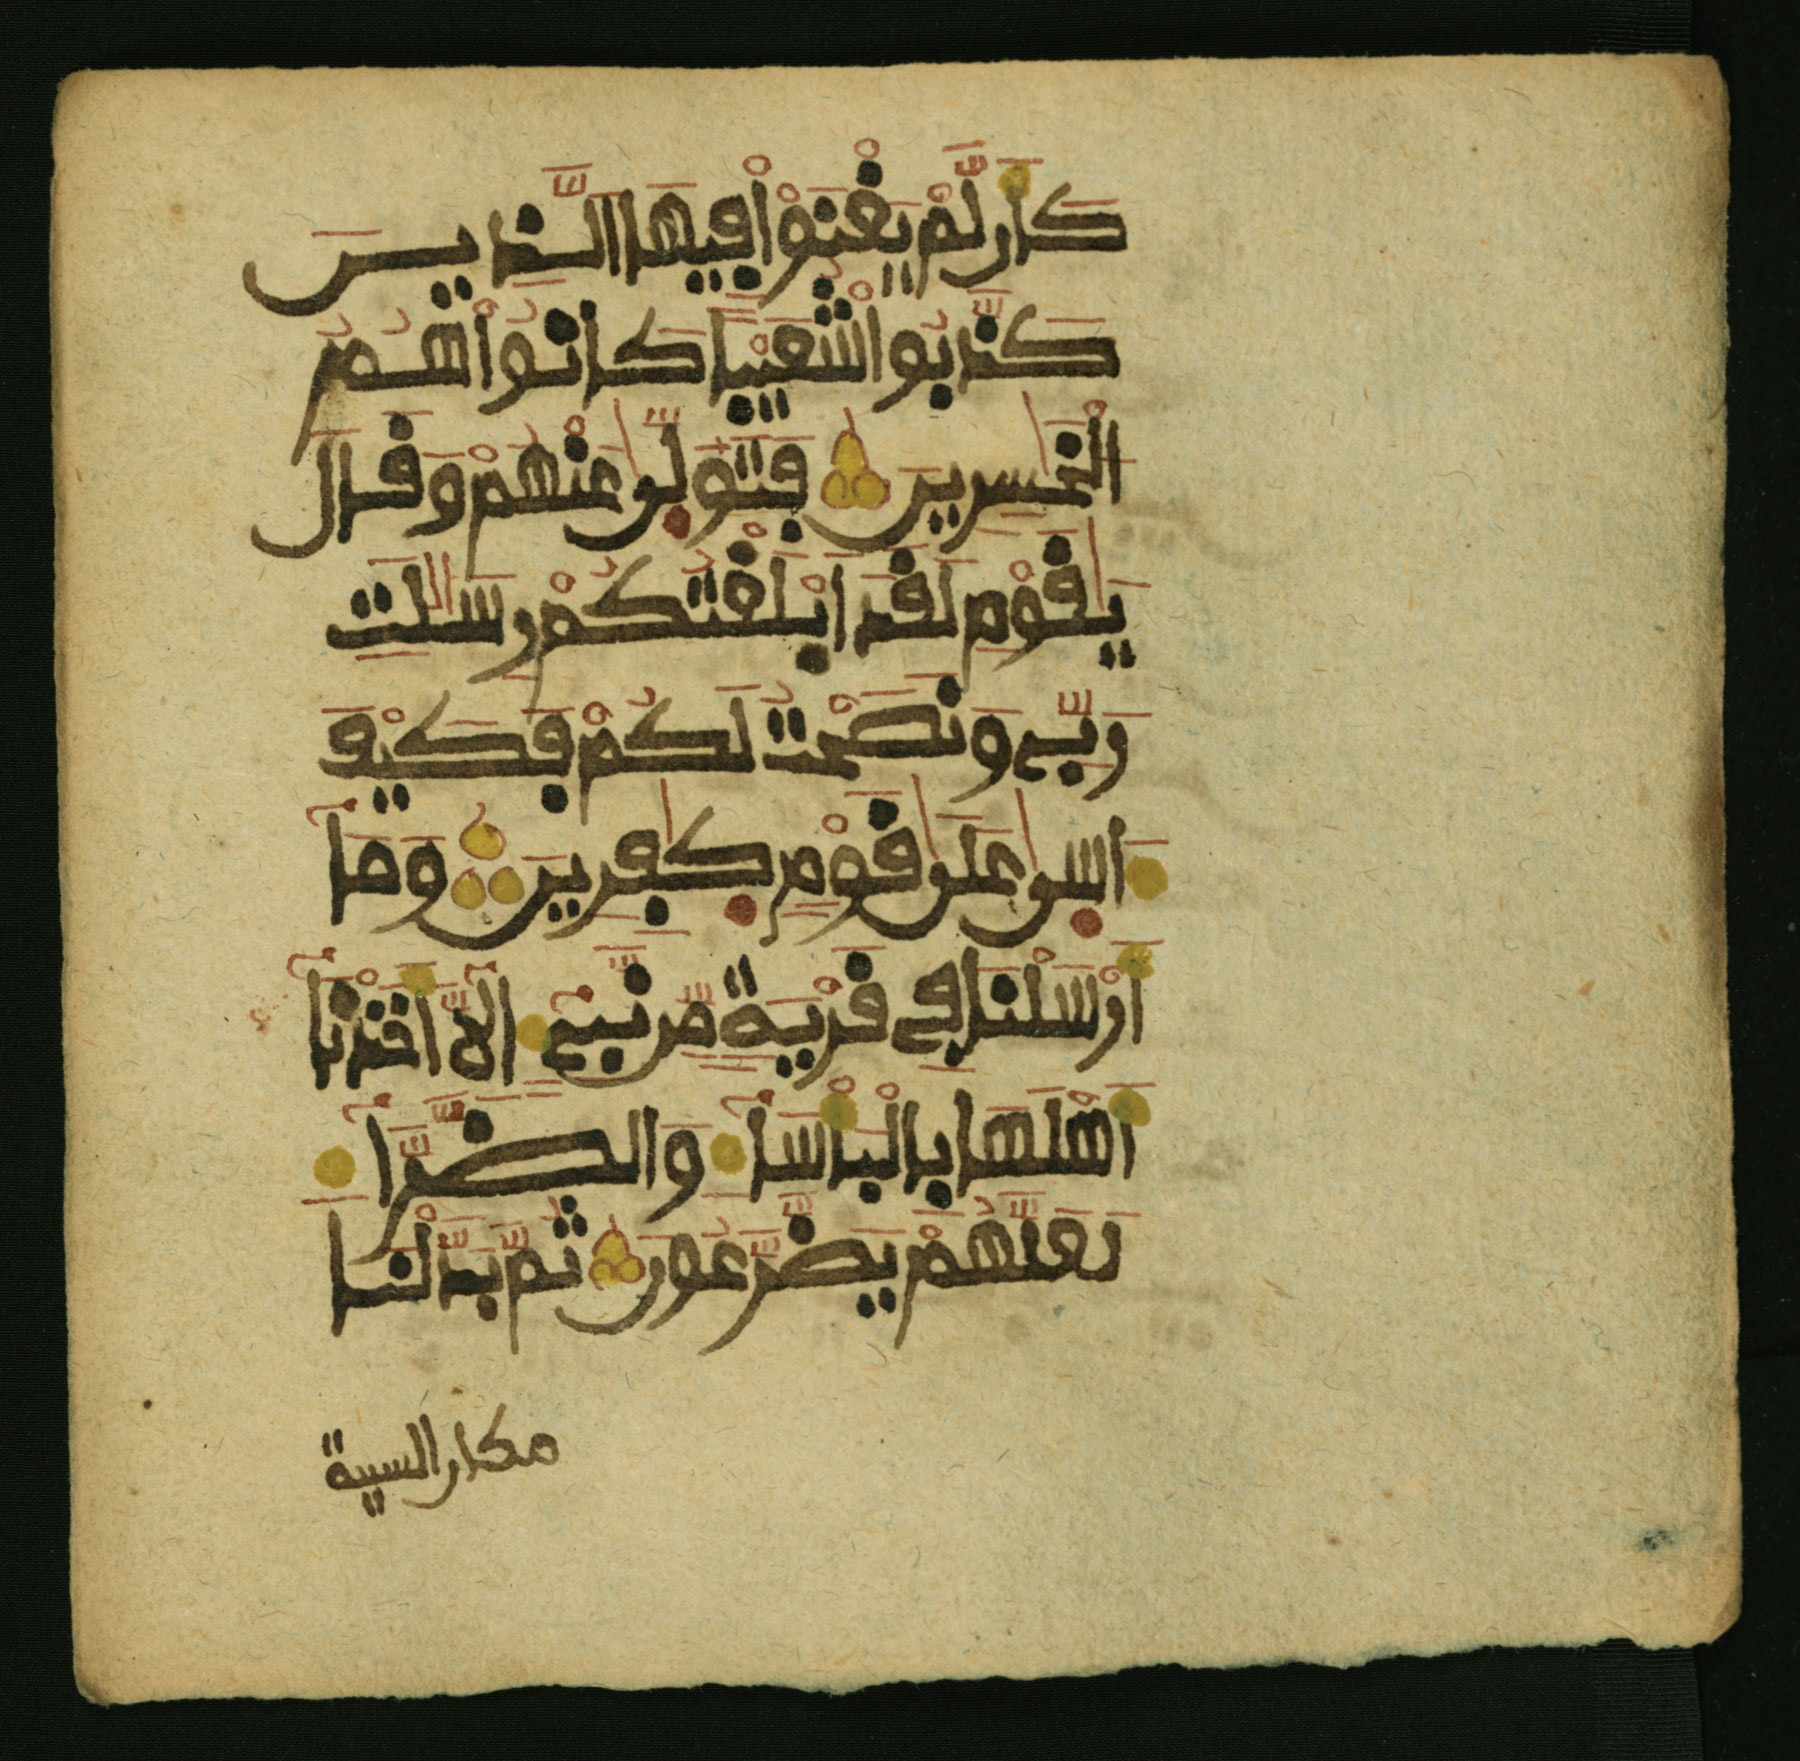 كَأَن لَّمْ يَغْنَوْا فِيهَا الَّذِينَ
كَذَّبُوا شُعَيْبًا كَانُوا هُمُ
الْخَٰسِرِينَ فَتَوَلَّىٰ عَنْهُمْ وَقَالَ
يَٰقَوْمِ لَقَدَ ابْلَغْتُكُمْ رِسَٰلَٰتِ
رَبِّي وَنَصَحْتُ لَكُمْ فَكَيْفَ
ءَاسَىٰ عَلَىٰ قَوْمٍ كَٰفِرِينَ وَمَا
أَرْسَلْنَا فِي قَرْيَةٍ مِّن نَّبِيءٍ اِلَّا أَخَذْنَا
أَهْلَهَا بِالْبَأْسَاءِ وَالضَّرَّاءِ
لَعَلَّهُمْ يَضَّرَّعُونَ ثُمَّ بَدَّلْنَا
مكان السيية